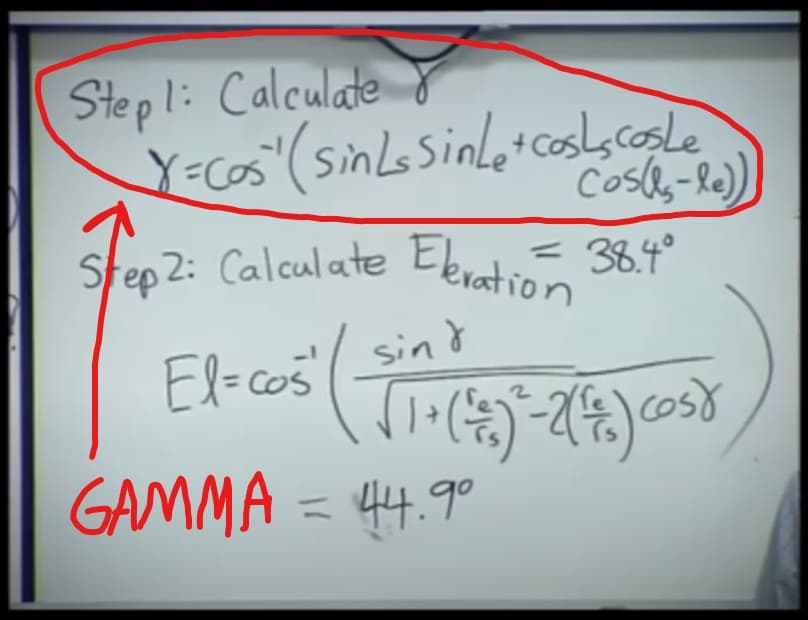 Step 1: Calculate γ
γ=cos⁻¹(sinLs sinLe+cosLs cosLe
cos(ls-le))
= 38.4°
Step 2: Calculate Elevation
El=cos⁻¹( sin γ / √1+(re/rs)²-2(re/rs)cosγ )
GAMMA = 44.9°